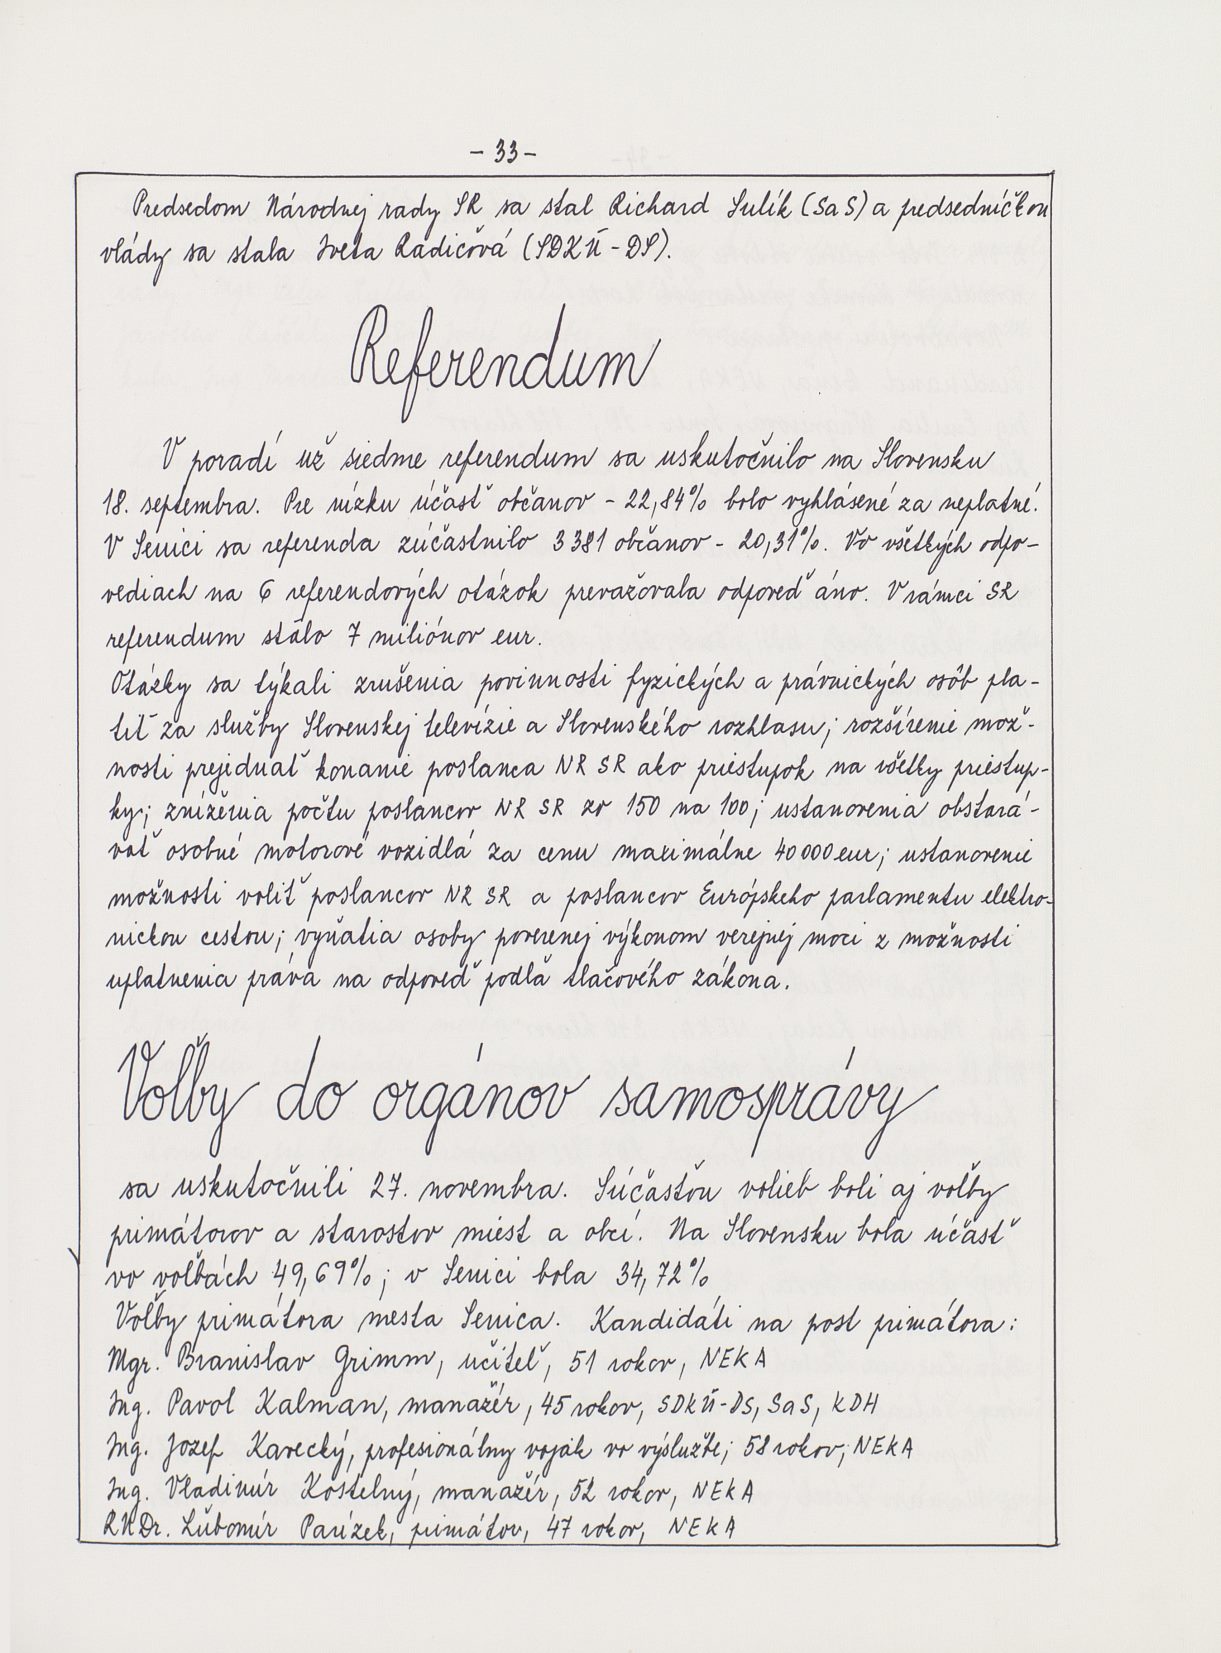 - 33 -
Predsedom Národnej rady SR sa stal Richard Sulík (SaS) a predsedníčkou
vlády sa stala Iveta Radičová (SDKÚ - DS).
Referendum
V poradí už siedme referendum sa uskutočnilo na Slovensku
18. septembra. Pre nízku účasť občanov - 22,84% bolo vyhlásené za neplatné.
V Senici sa referenda zúčastnilo 3 381 občanov - 20,31%. Vo všetkých odpo-
vediach na 6 referendových otázok prevažovala odpoveď áno. V rámci SR
referendum stálo 7 miliónov eur.
Otázky sa týkali zrušenia povinnosti fyzických a právnických osôb pla-
tiť za služby Slovenskej televízie a Slovenského rozhlasu; rozšírenie mož-
nosti prejednať konanie poslanca NR SR ako priestupok na všetky priestup-
ky; zníženia počtu poslancov NR SR zo 150 na 100; ustanovenia obstará-
vať osobné motorové vozidlá za cenu maximálne 40 000 eur; ustanovenie
možnosti voliť poslancov NR SR a poslancov Európskeho parlamentu elektro-
nickou cestou; vyňatia osoby poverenej výkonom verejnej moci z možnosti
uplatnenia práva na odpoveď podľa tlačového zákona.
Voľby do orgánov samosprávy
sa uskutočnili 27. novembra. Súčasťou volieb boli aj voľby
primátorov a starostov miest a obcí. Na Slovensku bola účasť
vo voľbách 49,69%; v Senici bola 34,72%
Voľby primátora mesta Senica. Kandidáti na post primátora:
Mgr. Branislav Grimm, učiteľ, 51 rokov, NEKA
Ing. Pavol Kalman, manažér, 45 rokov, SDKÚ-DS, SaS, KDH
Ing. Jozef Karecký, profesionálny vojak vo výslužbe; 58 rokov; NEKA
Ing. Vladimír Kostelný, manažér, 52 rokov, NEKA
RNDr. Ľubomír Parízek, primátor, 47 rokov, NEKA